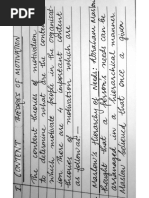 CONTENT THEORIES OF MOTIVATION
The content theories of motivation,
to determine the content
which motivate people in the organisat-
ion. There are 4 important content
theories of motivation which are
as follows:—
Maslow's Hierarchy of Needs: Abraham Maslow
thought that a person's needs can be
arranged in a hierarchical manner.
Maslow believed that once a given